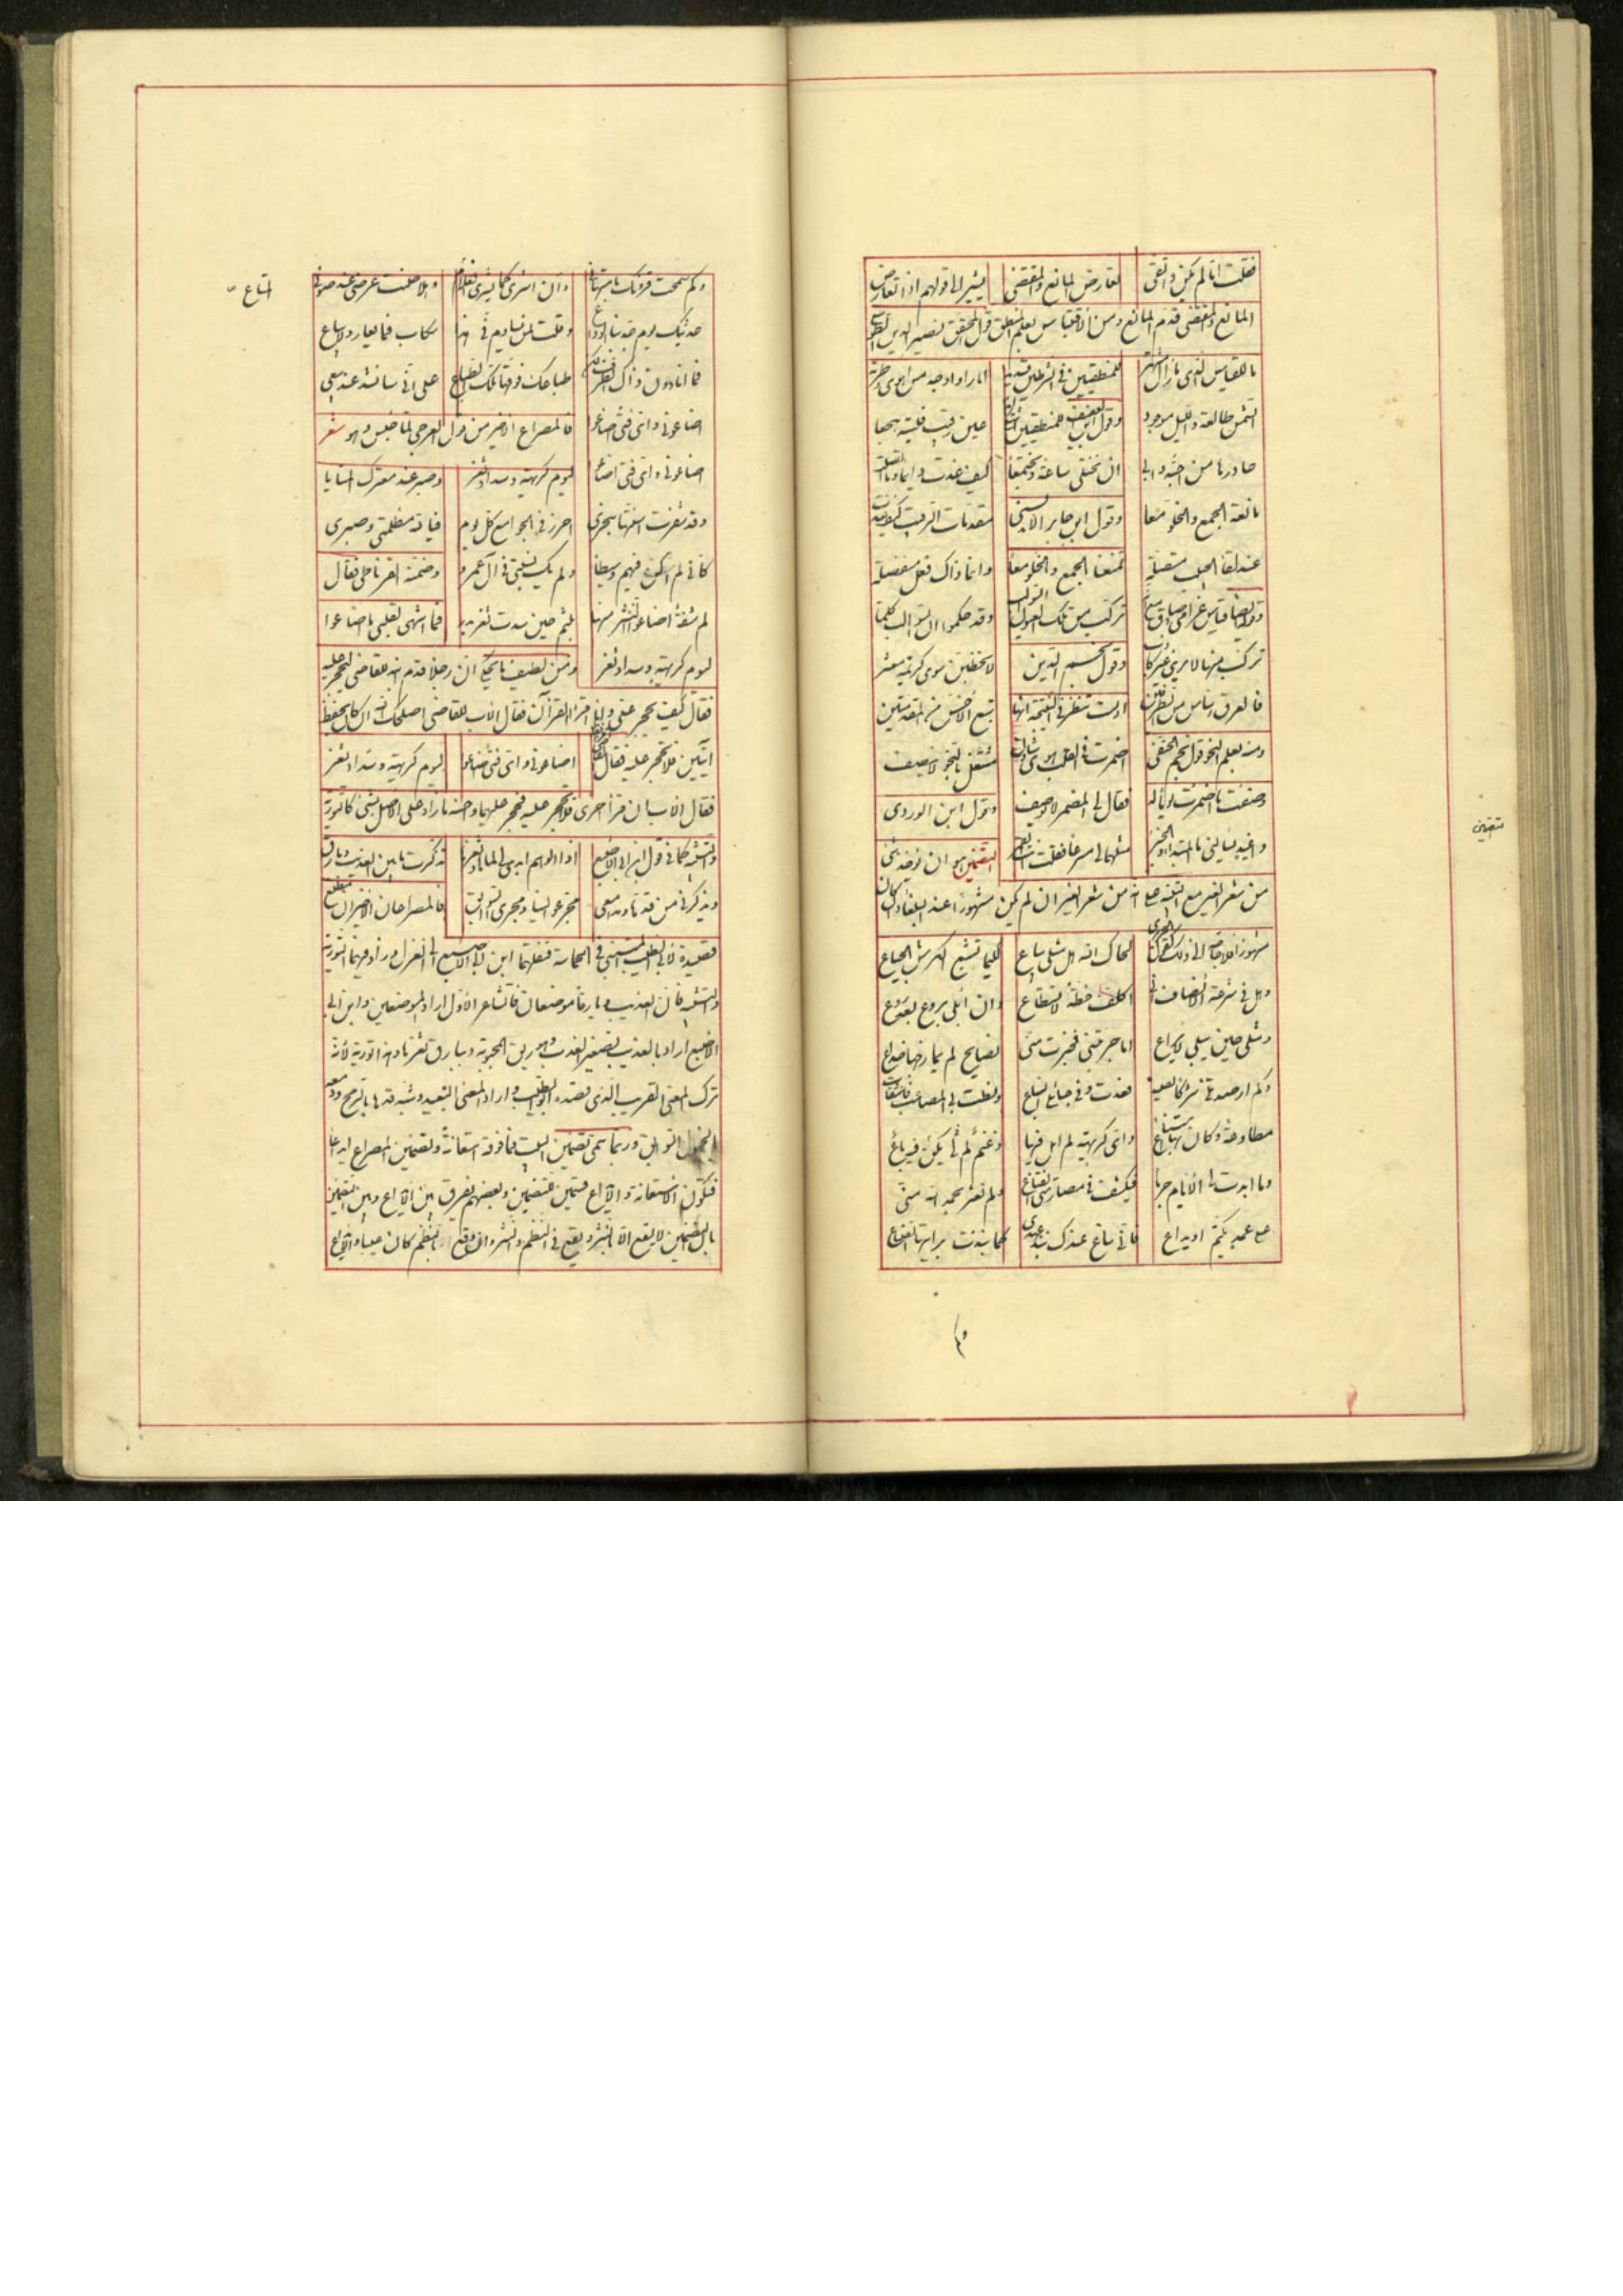 فقلت اذا لم يكن واتقى لتعارض المانع والمقتضى يشير الى قولهم اذا تعارض
المانع والمقتضى قدم المانع ومن الاقتباس بعلم المنطق قول المحقق نصير الدين الطوسى
ما للقياس الذى ما زال مشتهر للمنطقيين فى الشرطى اما راوا وجه من اهوى وطرته
الشمس طالعة والليل موجود وقول العفيف للمنطقيين عين رقيب فليته هجعا
حاذرها من احبه وابى ان نختلى ساعة ونجتمعا كيف غدت دايما
مانعة الجمع والخلو معا وقول ابن جابر الاندلسى مقدمات الرقيب كيف غدت
عند لقاء الحبيب متصلة تمنعنا الجمع والخلو معا وانما ذاك فعل منفصلة
وقد حكموا ان السوالب كلما
تركب منها لا يرى وقول نجم الدين لا تخطبن سوى كريمة معشر
فالعرق دساس من الطرفين اولست تنظر فى النتيجة انها تتبع الاخس من المقدمتين
ومنه بعلم النحو قول نجم الحنفى اضمرت فى القلب هوى شادن مشتغل بالنحو لا ينصف
وصفت ما اضمرت يوما له فقال لى المضمر لا يوصف وقول ابن الوردى
واغيد يسالنى ما المبتدا والخبر مثلهما لى مسرعا فقلت انت القمر التضمين هو ان يؤخذ شئ
من شعر الغير مع التنبيه على انه من شعر الغير ان لم يكن مشهورا عند البلغاء وان كان
مشهورا فلا حاجة الى ذلك كقول الحريرى لحاك الله هل مثلى يباع لكيما تشبع الكرش الجياع
وهل فى شرعة الانصاف انى اكلف خطة لا تستطاع وان ابلى بروع بعد روع
ومثلى حين يبلى لا يراع اما جربتنى فخبرت منى نصايح لم يمازجها خداع
وكم ارصدتنى شركا لصيد فعدت وفى حبائلى السباع ونطت بى المصاعب فاستقادت
مطاوعة وكان بها امتناع واى كريهة لم ابل فيها وغنم لم يكن لى فيه باع
وما ابدت لى الايام جرما فيكشف فى مصارمتى القناع ولم تعثر بحمد الله منى
على عيب يكتم او يذاع فانى ساغ عندك نبذ عهدى كما نبذت برايتها الصناع
تضمين
ولم سمحت قرونك بامتهانى وان اشرى كما يشرى المتاع وهلا صنت عرضى عنه صونى
حديثك يوم جد بنا الوداع وقلت لمن يساوم فى هذا سكاب فما يعار ولا يباع
فما انا دون ذاك الطرف لكن طباعك فوقها تلك الطباع على انى سانشد عند بيعى
اضاعونى واى فتى اضاعوا فالمصراع الاخير من قول العرجى لما حبس وهو شعر
اضاعونى واى فتى اضاعوا ليوم كريهة وسداد ثغر وصبر عند معترك المنايا
وقد شرعت اسنتها بنحرى اجرر فى الجوامع كل يوم فيا لله مظلمتى وصبرى
كانى لم اكن فيهم وسيطا ولم يك نسبتى فى آل عمرو وضمنه القرناطى فقال
له شفة اضاعوا النشر منها بلثم حين سدت ثغر بدر فما اشهى لقلبى ما اضاعوا
ليوم كريهة وسداد ثغر ومن لطيف ما يحكى ان رجلا قدم ابنه للقاضى ليحجر عليه
فقال كيف يحجر على وانا اقرأ القرآن فقال الاب للقاضى اصلحك الله ان كان يحفظ
آيتين فلا تحجر عليه فقال اضاعونى واى فتى اضاعوا ليوم كريهة وسداد ثغر
فقال الاب ان قرأ اخرى فلا تحجر عليه فحجر عليهما واحسنه ما زاد على الاصل بشئ كالتورية
والتشبيه كما فى قول ابن ابى الاصبع اذا الوهم ابدى لى لماها وثغرها تذكرت ما بين العذيب وبارق
ويذكرنى من قدها ومدامعى مجر عوالينا ومجرى السوابق فالمصراعان الاخيران مطلع
قصيدة لابى الطيب المتنبى فى الحماسة فنقلهما ابن ابى الاصبع الى الغزل وزاد فيهما التورية
والتشبيه فان العذيب وبارقا موضعان فالشاعر الاول اراد الموضعين وابن ابى
الاصبع اراد بالعذيب تصغير العذب وهو ريق المحبوبة وببارق ثغرها وهذه تورية لانه
ترك المعنى القريب الذى قصده ابو الطيب واراد المعنى البعيد وشبه قدها بالرمح ودمعه
بالخيول السوابق وربما سمى تضمين البيت فما فوقه استعانة وتضمين المصراع ايداعا
فتكون الاستعانة والايداع قسمين للتضمين وبعضهم يفرق بين الايداع وبين التضمين
بان التضمين لا يقع الا بالنثر ويقع فى النظم والنثر وان وقع بالنظم كان عيبا والايداع
المتاع